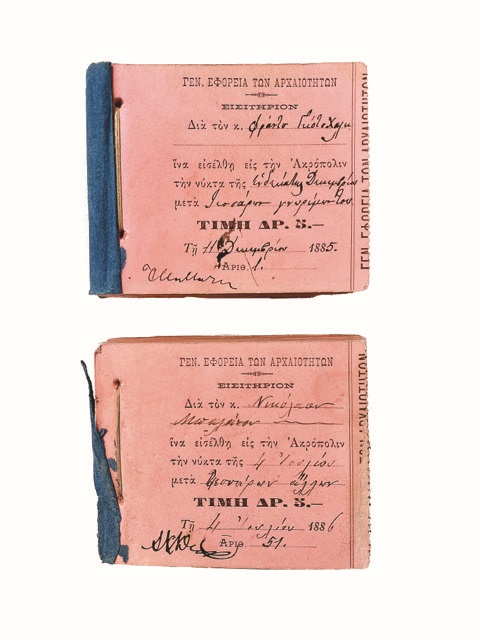 ΓΕΝ. ΕΦΟΡΕΙΑ ΤΩΝ ΑΡΧΑΙΟΤΗΤΩΝ
ΕΙΣΙΤΗΡΙΟΝ
Διὰ τὸν κ.
ἵνα εἰσέλθῃ εἰς τὴν Ἀκρόπολιν
τὴν νύκτα τῆς ἑνδεκάτης Δεκεμβρίου
μετὰ
ΤΙΜΗ ΔΡ. 5.—
Τῇ 11 Δεκεμβρίου 1885.
Ἀριθ. 1.
ΓΕΝ. ΕΦΟΡΕΙΑ ΤΩΝ ΑΡΧΑΙΟΤΗΤΩΝ
ΓΕΝ. ΕΦΟΡΕΙΑ ΤΩΝ ΑΡΧΑΙΟΤΗΤΩΝ
ΕΙΣΙΤΗΡΙΟΝ
Διὰ τὸν κ. Νικόλαον
ἵνα εἰσέλθῃ εἰς τὴν Ἀκρόπολιν
τὴν νύκτα τῆς 4 Ἰουλίου
μετὰ τεσσάρων ἄλλων
ΤΙΜΗ ΔΡ. 5.—
Τῇ 4 Ἰουλίου 1886
Ἀριθ. 51.
ΤΩΝ ΑΡΧΑΙΟΤΗΤΩΝ